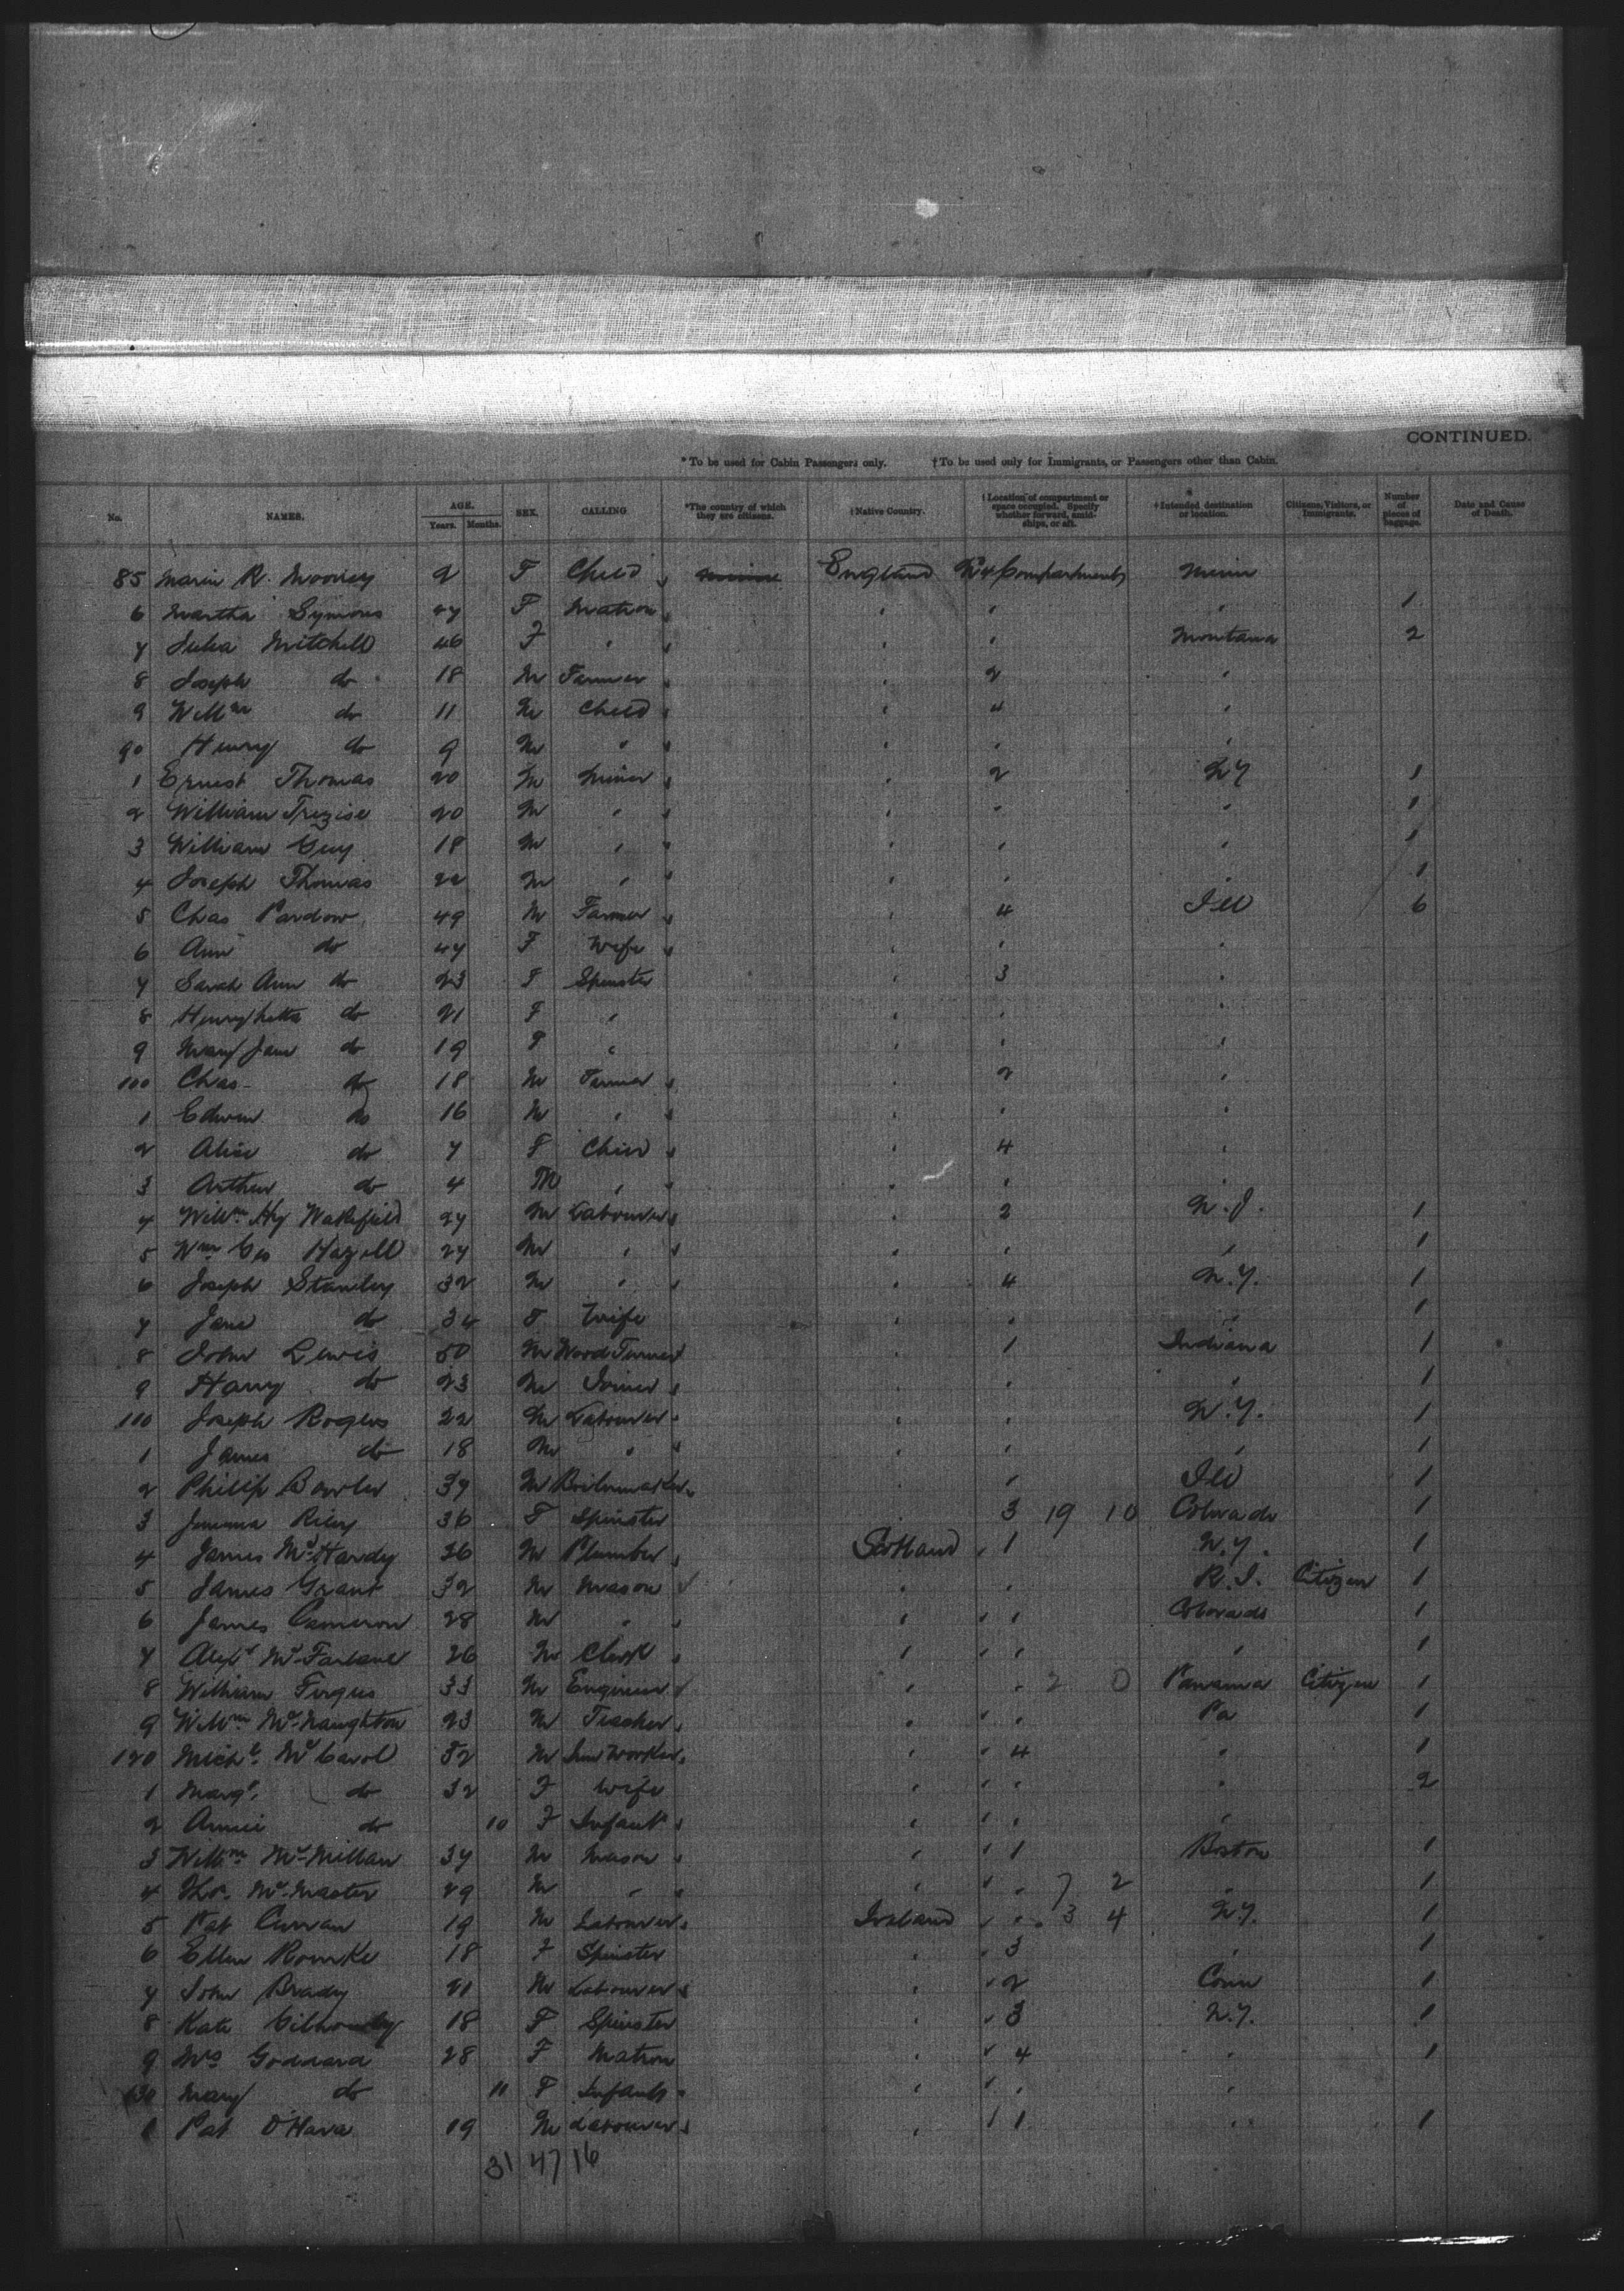 CONTINUED.
*To be used for Cabin Passengers only. †To be used only for Immigrants, or Passengers other than Cabin.
No. NAMES. AGE. Years. Months. SEX. CALLING *The country of which they are citizens. †Native Country. †Location of compartment or space occupied. Specify whether forward, amidships, or aft. †Intended destination or location. Citizens, Visitors, or Immigrants. Number of pieces of baggage. Date and Cause of Death.
85 R. 9 F Child England Compartment
6 Martha Symons 47 F Matron " " " 1
7 Julia Mitchell 46 F " " " Montana 2
8 Joseph do 18 M Farmer " 2 "
9 Willm do 11 M Child " 4 "
90 Henry do 9 M " " " "
1 Ernest Thomas 20 M Miner " 2 N.Y 1
2 William Trezise 20 M " " " " 1
3 William Guy 18 M " " " " 1
4 Joseph Thomas 22 M " " " " 1
5 Chas Pardow 49 M Farmer " 4 Ill 6
6 Ann do 47 F Wife " " "
7 Sarah Ann do 23 F Spinster " 3 "
8 Henryhetta do 21 F " " " "
9 Mary Jane do 19 F " " " "
100 Chas do 18 M Farmer " 2 "
1 Edwin do 16 M " " " "
2 Alice do 7 F Child " 4 "
3 Arthur do 4 M " " " "
4 Willm Hy Wakefield 27 M Labourer " 2 N.J. 1
5 Wm Geo Hazell 27 M " " " " 1
6 Joseph Stanley 32 M " " 4 N.Y. 1
7 Jane do 34 F Wife " " " 1
8 John Lewis 50 M Wood Turner " 1 Indiana 1
9 Harry do 23 M Joiner " " " 1
110 Joseph Rogers 22 M Labourer " " N.Y. 1
1 James do 18 M " " " " 1
2 Philip Bowler 37 M Boilermaker " " Ill 1
3 Jemima Riley 36 F Spinster " 3 19 10 Colorado 1
4 James McHardy 26 M Plumber Scotland 1 N.Y. 1
5 James Grant 32 M Mason " " R.I. Citizen 1
6 James Cameron 28 M " " " Colorado 1
7 Alexr McFarlane 26 M Clerk " " " 1
8 William Fergus 33 M Engineer " " 2 0 Panama Citizen 1
9 Willm McNaughton 23 M Teacher " " Pa 1
120 Michl McCarol 52 M Iron Worker " 4 " 1
1 Margt do 32 F Wife " " " 2
2 Annie do 10 F Infant " " "
3 Willm McMillan 37 M Mason " 1 Boston 1
4 Thos McMaster 29 M " " " 7 2 " 1
5 Pat Curran 19 M Labourer Ireland " 3 4 N.Y. 1
6 Ellen Rourke 18 F Spinster " 3 " 1
7 John Brady 21 M Labourer " 2 Conn 1
8 Kate 18 F Spinster " 3 N.Y. 1
9 Mrs Goddard 28 F Matron " 4 " 1
130 Mary do 11 F Infant " " "
1 Pat O'Hara 19 M Labourer " 1 " 1
31 47 16